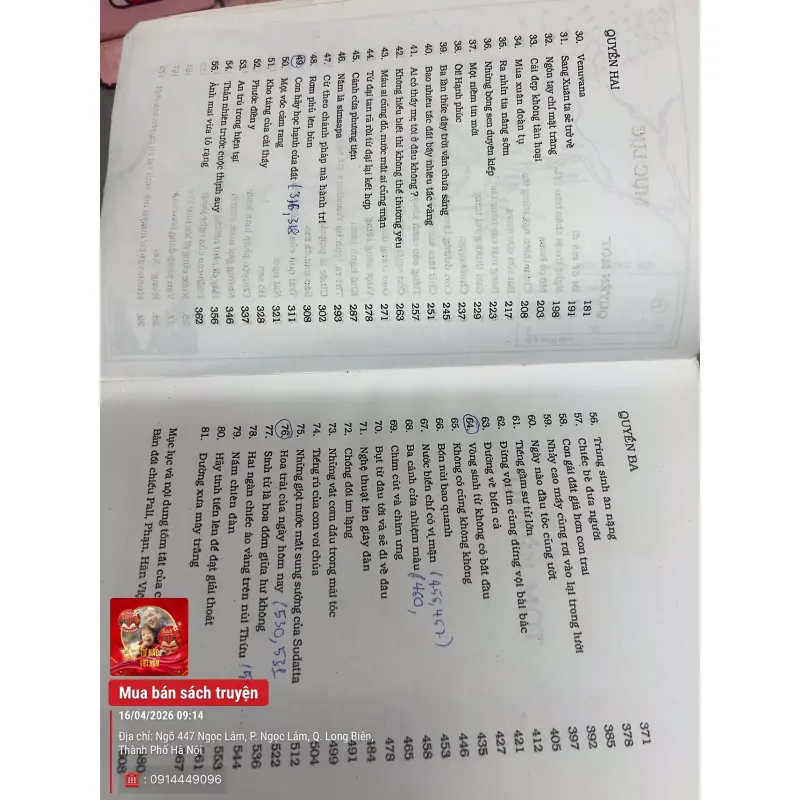 QUYỂN HAI
30. Venuvana 181
31. Sang Xuân ta sẽ trở về 191
32. Ngón tay chỉ mặt trăng 198
33. Cái đẹp không tàn hoại 203
34. Mùa xuân đoàn tụ 208
35. Ra nhìn tia nắng sớm 217
36. Những bông sen duyên kiếp 223
37. Một niềm tin mới 229
38. Ôi! Hạnh phúc 237
39. Ba lần thức dậy trời vẫn chưa sáng 245
40. Bao nhiêu tấc đất bấy nhiêu tấc vàng 251
41. Ai có thấy mẹ tôi ở đâu không? 257
42. Không hiểu biết thì không thể thương yêu 263
43. Máu ai cũng đỏ, nước mắt ai cũng mặn 271
44. Từ đại tan rã rồi từ đại lại kết hợp 278
45. Cánh cửa phương tiện 287
46. Nắm lá simsapa 293
47. Cứ theo chánh pháp mà hành trì 302
48. Rơm phủ lên bùn 308
49. Con hãy học hạnh của đất (316, 318 311
50. Một vốc cám rang 321
51. Kho tàng của cái thấy 328
52. Phước điền y 337
53. An trú trong hiện tại 346
54. Thản nhiên trước cuộc thịnh suy 356
55. Ánh mai vừa ló rạng 362
QUYỂN BA
56. Trùng sinh ân nặng 371
57. Chiếc bè đưa người 378
58. Con gái đắt giá hơn con trai 385
59. Nhảy cao mấy cũng rơi vào lại trong lưới 392
60. Ngày nào đầu tóc cũng ướt 397
61. Tiếng gầm sư tử lớn 405
62. Đừng vội tin cũng đừng vội bài bác 412
63. Đường về biển cả 421
64. Vòng sinh tử không có bắt đầu 427
65. Không có cũng không không 435
66. Bốn núi bao quanh 446
67. Nước biển chỉ có vị mặn (455, 457) 453
68. Ba cánh cửa nhiệm mầu (460, 458
69. Chim cút và chim ưng 465
70. Bụt từ đâu tới và sẽ đi về đâu 478
71. Nghệ thuật lên giây đàn 484
72. Chống đối im lặng 491
73. Những vắt cơm dấu trong mái tóc 499
74. Tiếng rú của con voi chúa 504
75. Những giọt nước mắt sung sướng của Sudatta 512
76. Hoa trái của ngày hôm nay (530, 531 522
77. Sinh tử là hoa đốm giữa hư không 536
78. Hai ngàn chiếc áo vàng trên núi Thứu 544
79. Nấm chiên đàn 553
80. Hãy tinh tiến lên để đạt giải thoát 561
81. Đường xưa mây trắng 567
Mục lục và nội dung tóm tắt của c 580
Bản đối chiếu Pali, Phạn, Hán Việ 608
TỰ HÀO
VIỆT NAM
Mua bán sách truyện
16/04/2026 09:14
Địa chỉ: Ngõ 447 Ngọc Lâm, P. Ngọc Lâm, Q. Long Biên,
Thành Phố Hà Nội
☎ : 0914449096